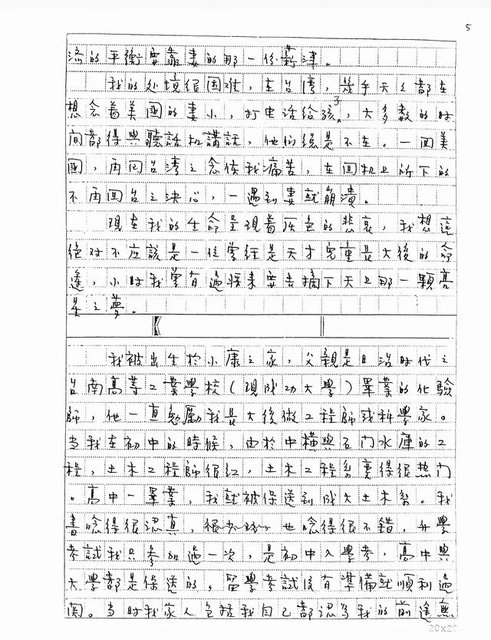 5
流的平衡要靠妻的那一份薪津。
我的处境很困难,在台湾,幾乎天天都在
想念着美國的妻小,打电话给孩子,大多數的时
間都得與聽話机講話,他们總是不在。一回美
國,再回台湾之念使我痛苦,在回机上所下的
不再回台之決心,一遇到妻就崩潰。
現在我的生命呈現着灰色的悲哀,我想這
絕对不应該是一位曾經是天才兒童長大後的命
運,小时我曾有過将来要去摘下天上那一顆亮
星之夢。
我被出生於小康之家,父親是日治时代之
台南高等工業学校(現成功大學)畢業的化驗
師,他一直勉勵我長大後做工程師或科學家。
当我在初中的時候,由於中橫與石門水庫的工
程,土木工程師很红,土木工程系变得很热门
。高中一畢業,我就被保送到成大土木系。我
書唸得很認真,很 也唸得很不錯,升學
考試我只參加過一次,是初中入學考,高中與
大學都是保送的,留學考試没有準備就順利過
関。当时我家人包括我自己都認為我的前途無
20×20